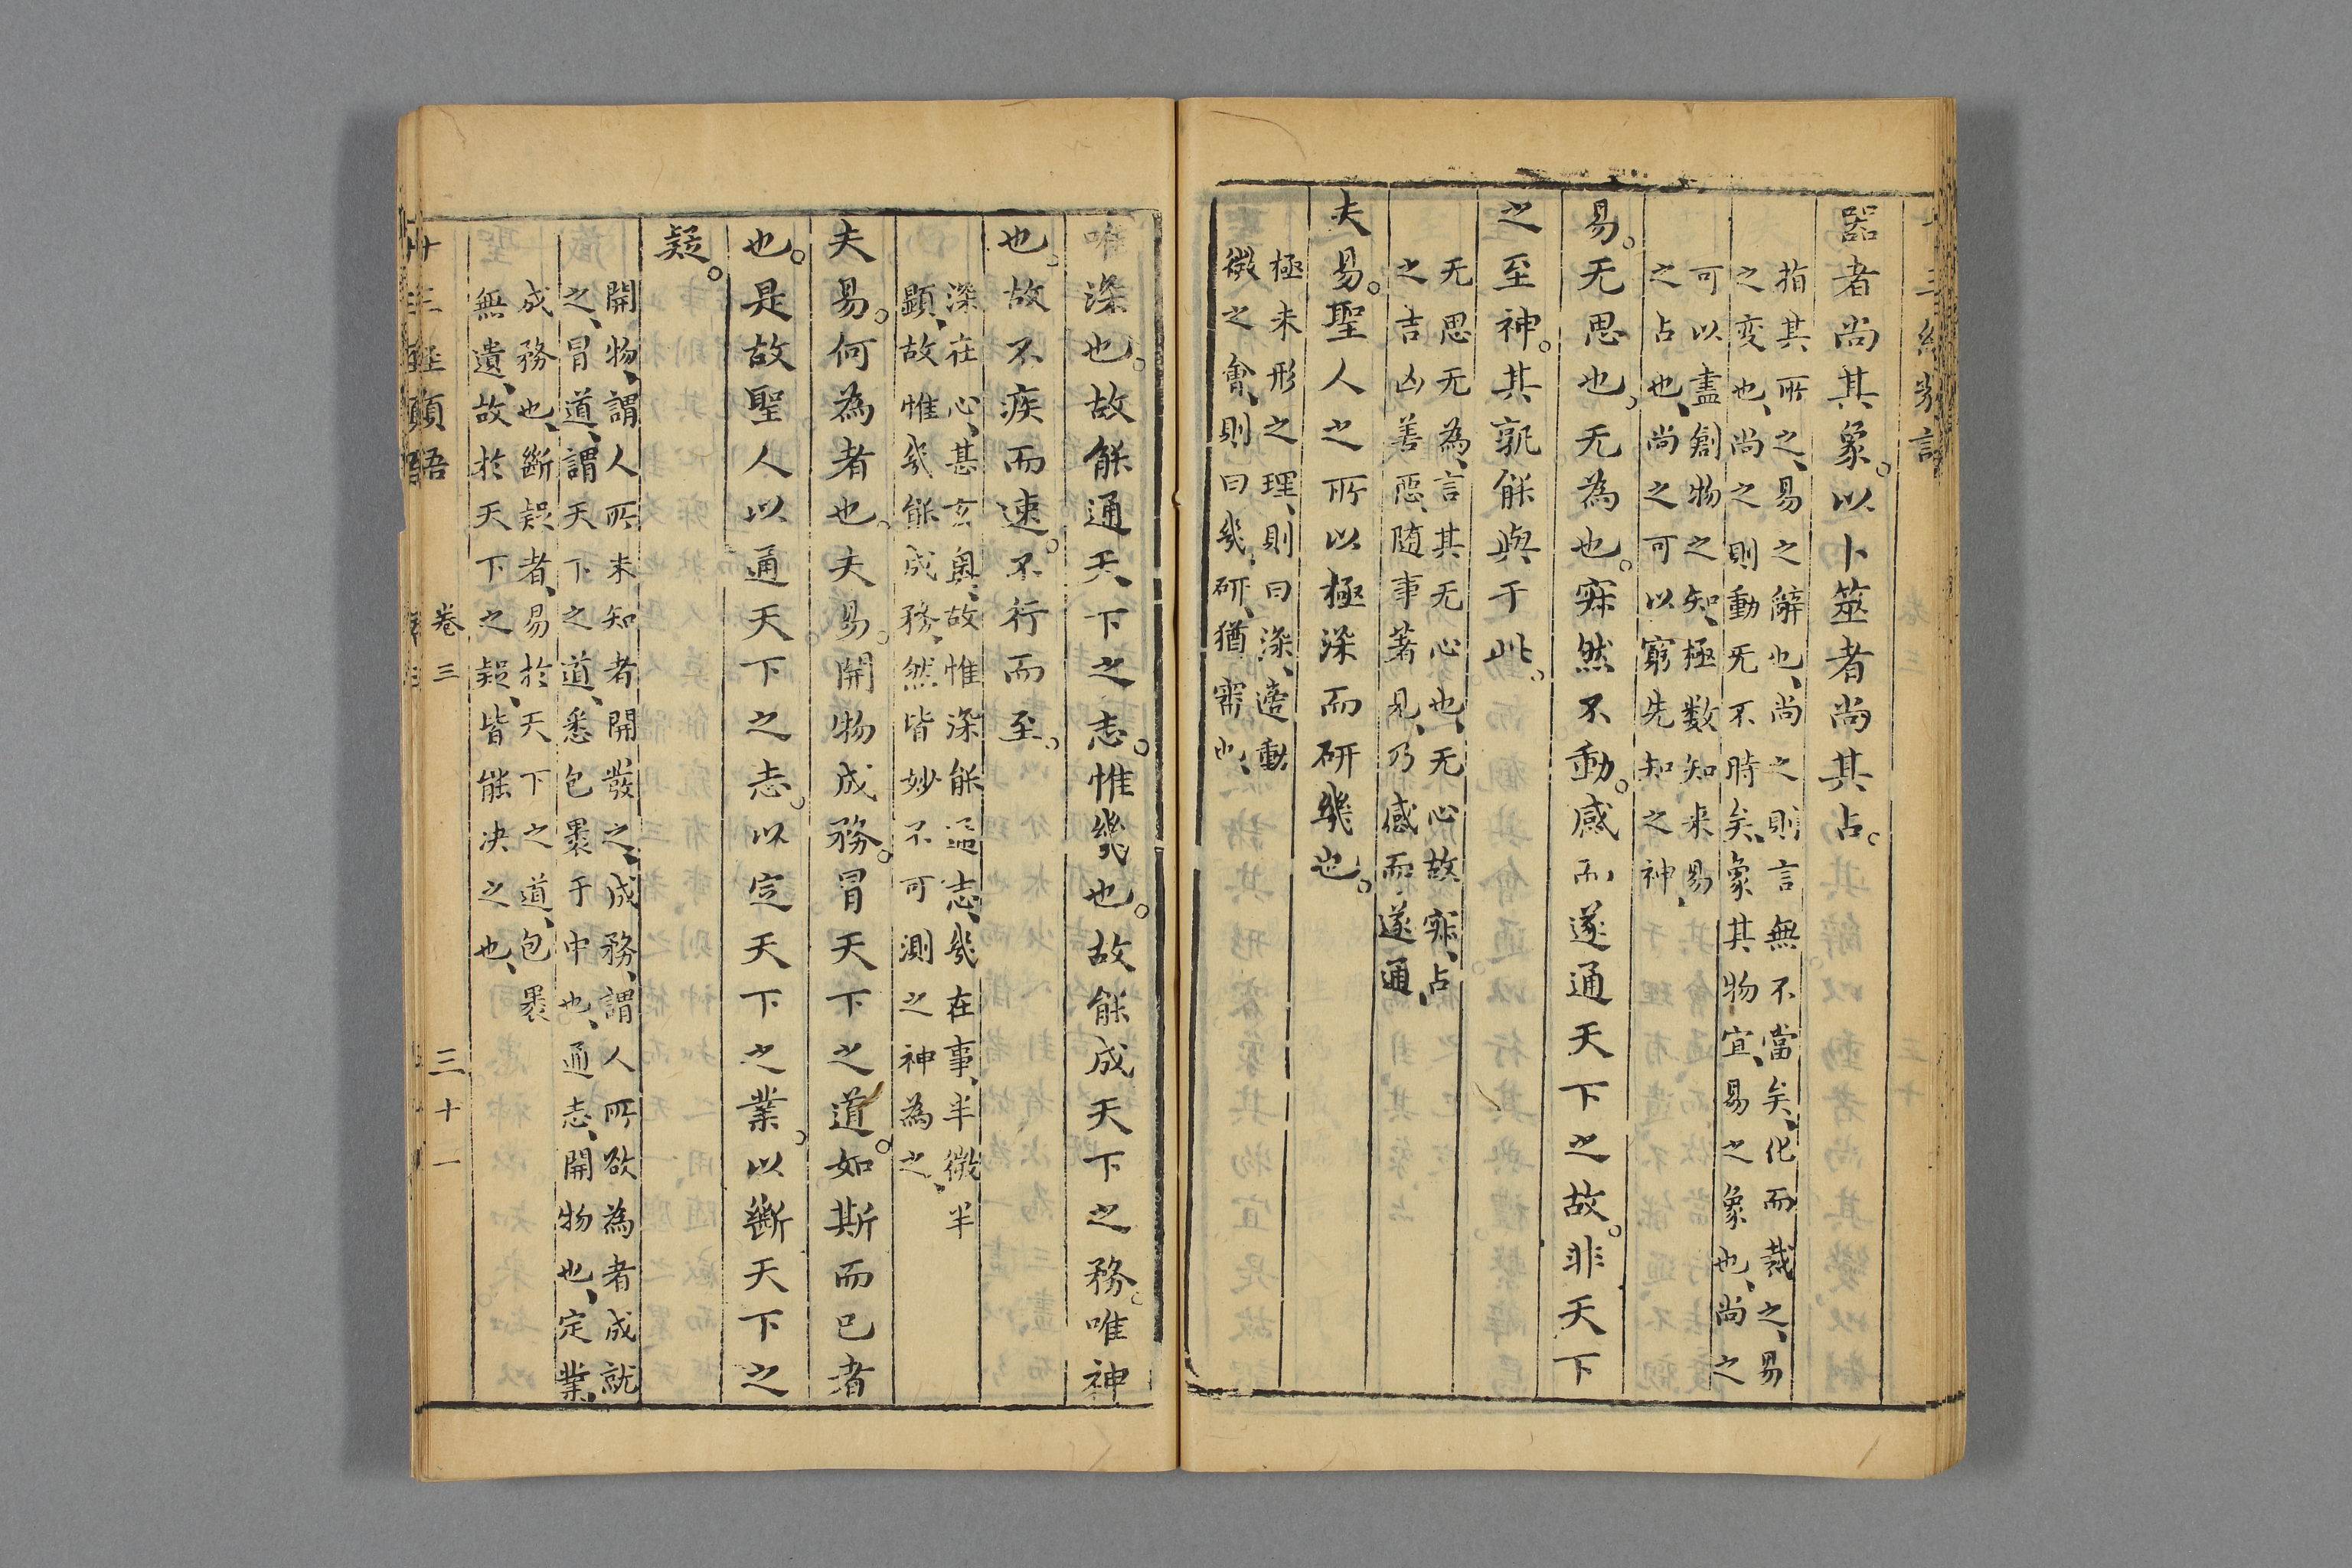 器者尚其象。以卜筮者尚其占。
指其所之、易之辭也、尚之則言無不當矣、化而裁之、易
之変也、尚之則動旡不時矣、象其物宜、易之象也、尚之
可以盡創物之知、極數知来、易、
之占也、尚之可以窮先知之神、
易。无思也。无為也。寂然不動。感而遂通天下之故。非天下
之至神。其孰能與于此。
无思无為、言其无心也、无心故寂、占
之吉凶善惡、随事著見、乃感而遂通、
夫易。聖人之所以極深而研幾也。
極未形之理、則曰深、適動
微之會、則曰幾、研、猶審也、
唯深也。故能通天下之志。惟幾也。故能成天下之務。唯神
也。故不疾而速。不行而至。
深在心、甚玄奥、故惟深能通志、幾在事、半微半
顕、故惟幾能成務、然皆妙不可測之神為之、
夫易。何為者也。夫易。開物成務。冒天下之道。如斯而已者
也。是故聖人以通天下之志。以定天下之業。以斷天下之
疑。
開物、謂人所未知者開發之、成務、謂人所欲為者成就
之、冒道、謂天下之道、悉包褁于中也、通志、開物也、定業、
成務也、斷疑者、易於天下之道、包褁
無遺、故於天下之疑、皆能决之也、
十三經類語
卷三
三十一